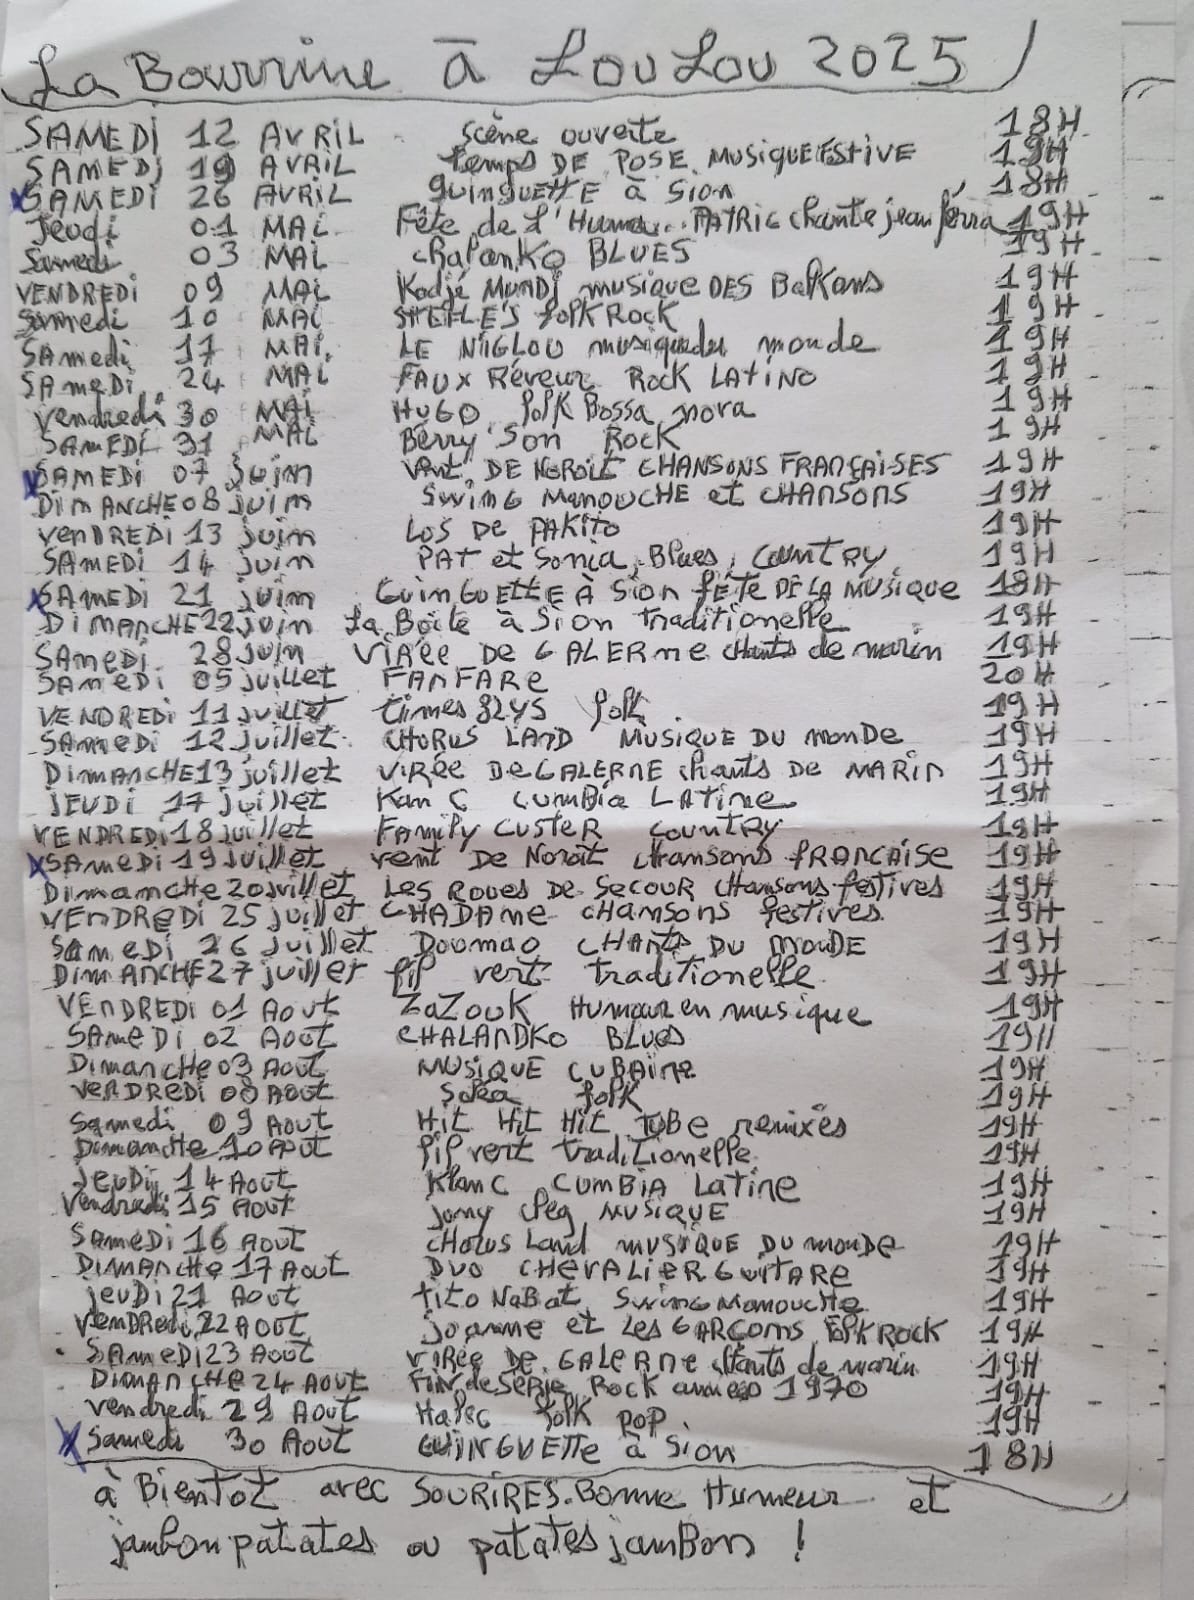 La Bourrine à LouLou 2025
SAMEDI 12 AVRIL Scène ouverte 18H
SAMEDI 19 AVRIL temps DE POSE MUSIQUE FESTIVE 19H
SAMEDI 26 AVRIL guinguette à Sion 18H
Jeudi 01 MAI Fête de l'Huma.. PATRIC chante jean ferra 19H
Samedi 03 MAI BLUES 19H
VENDREDI 09 MAI Kadjé MUNDI musique DES Balkans 19H
Samedi 10 MAI folk Rock 19H
SAmedi 17 MAI. LE NIGLOU musique du monde 19H
SAmeDi 24 MAI FAUX Rêveur Rock LATiNO 19H
Vendredi 30 MAI HUGO folk Bossa nova 19H
SAmEDI 31 MAI Berry Son Rock 19H
SAMEDI 07 juin Vent DE NOROIT CHANSONS FRANÇAISES 19H
DiMANCHE 08 juin SWING MANOUCHE et CHANSONS 19H
VenDREDI 13 juin LOS DE PAKITO 19H
SAMEDI 14 juin PAT et Sonia, Blues, COUNTRY 19H
SAMEDI 21 juin GuinGuEttE À Sion FÊTE DE LA MUSiQUE 18H
DiMANCHE 22 juin La Boite à Sion traditionelle 19H
SAmeDi 28 juin VIRÉE DE GALERne chants de marin 19H
SAmeDi 05 juillet FAnFARe 20H
VENDREDi 11 juillet times 8LYS folk 19H
SAmeDi 12 juillet CHORUS LAnD MUSiQUE DU monDe 19H
DimAnCHE 13 juillet VIRÉe De GALERNE chants DE MARIN 19H
JEUDI 17 juillet Kan C cumBia LATine 19H
VENDREDI 18 juillet FAmily CUSTER COUNTRY 19H
SAmeDi 19 juillet vent DE Noroit chansons fRANCAiSe 19H
Dimanche 20 juillet LeS ROUES DE SECOUR CHansons festives 19H
VEnDREDi 25 juillet CHADAme CHansons festives 19H
SAmeDi 26 juillet Doomao CHAnts DU monDE 19H
DiMANCHE 27 juillet Pil vert traditionelle 19H
VENDREDI 01 Aout ZaZouK Humour en musique 19H
SAMeDi 02 Aout CHALANDKO BLues 19H
Dimanche 03 Aout MUSiQUE CUBAine 19H
VenDREDi 08 AOUt Soka folk 19H
Samedi 09 Aout Hit Hit Hit TUBe remixés 19H
Dimanche 10 Aout Pil vert traditionelle 19H
JeuDi 14 Aout Klan C CUMBiA Latine 19H
Vendredi 15 AOUt MUSiQUE 19H
SAmeDi 16 Aout CHorus Land mUSiQUE DU monDe 19H
DiMANCHe 17 Aout DUO CHEVALiER GUiTARe 19H
jeuDi 21 Aout tito NaBat Swing Manouche 19H
VenDREDi 22 AOUt joanne et Les GARçons folk RoCK 19H
SAmeDi 23 Aout VIRÉe DE GALERne chants de marin 19H
Dimanche 24 AOUt FiN de SERie Rock années 1970 19H
vendredi 29 AOUt folk POP 19H
Samedi 30 Aout GUiNGUEtte à Sion 18H
à Bientot avec SOURIRES. Bonne Humeur et
jambon patates ou patates jamBon !